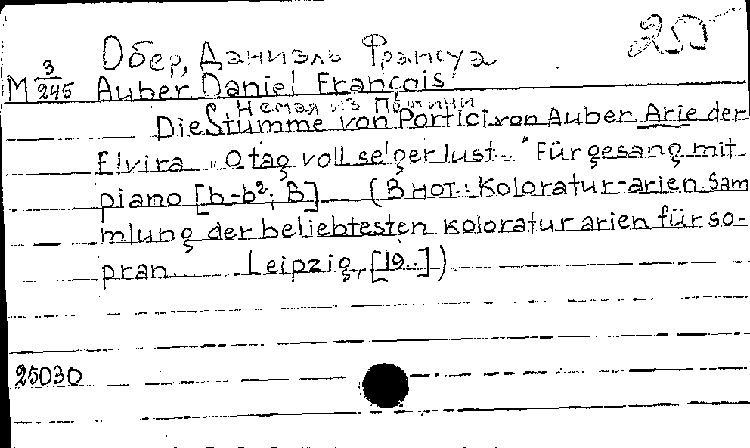 25
Обер, Даниэль Франсуа
М 3/245 Auber Daniel François
Немая из Портичи
Die Stumme von Portici von Auber Arie der
Elvira „O tag voll sel'ger lust..." Für gesang mit
piano [h-b²; B] (В нот.: Koloratur-arien Sam
mlung der beliebtesten koloratur arien für so-
pran Leipzig, [19..])
25030